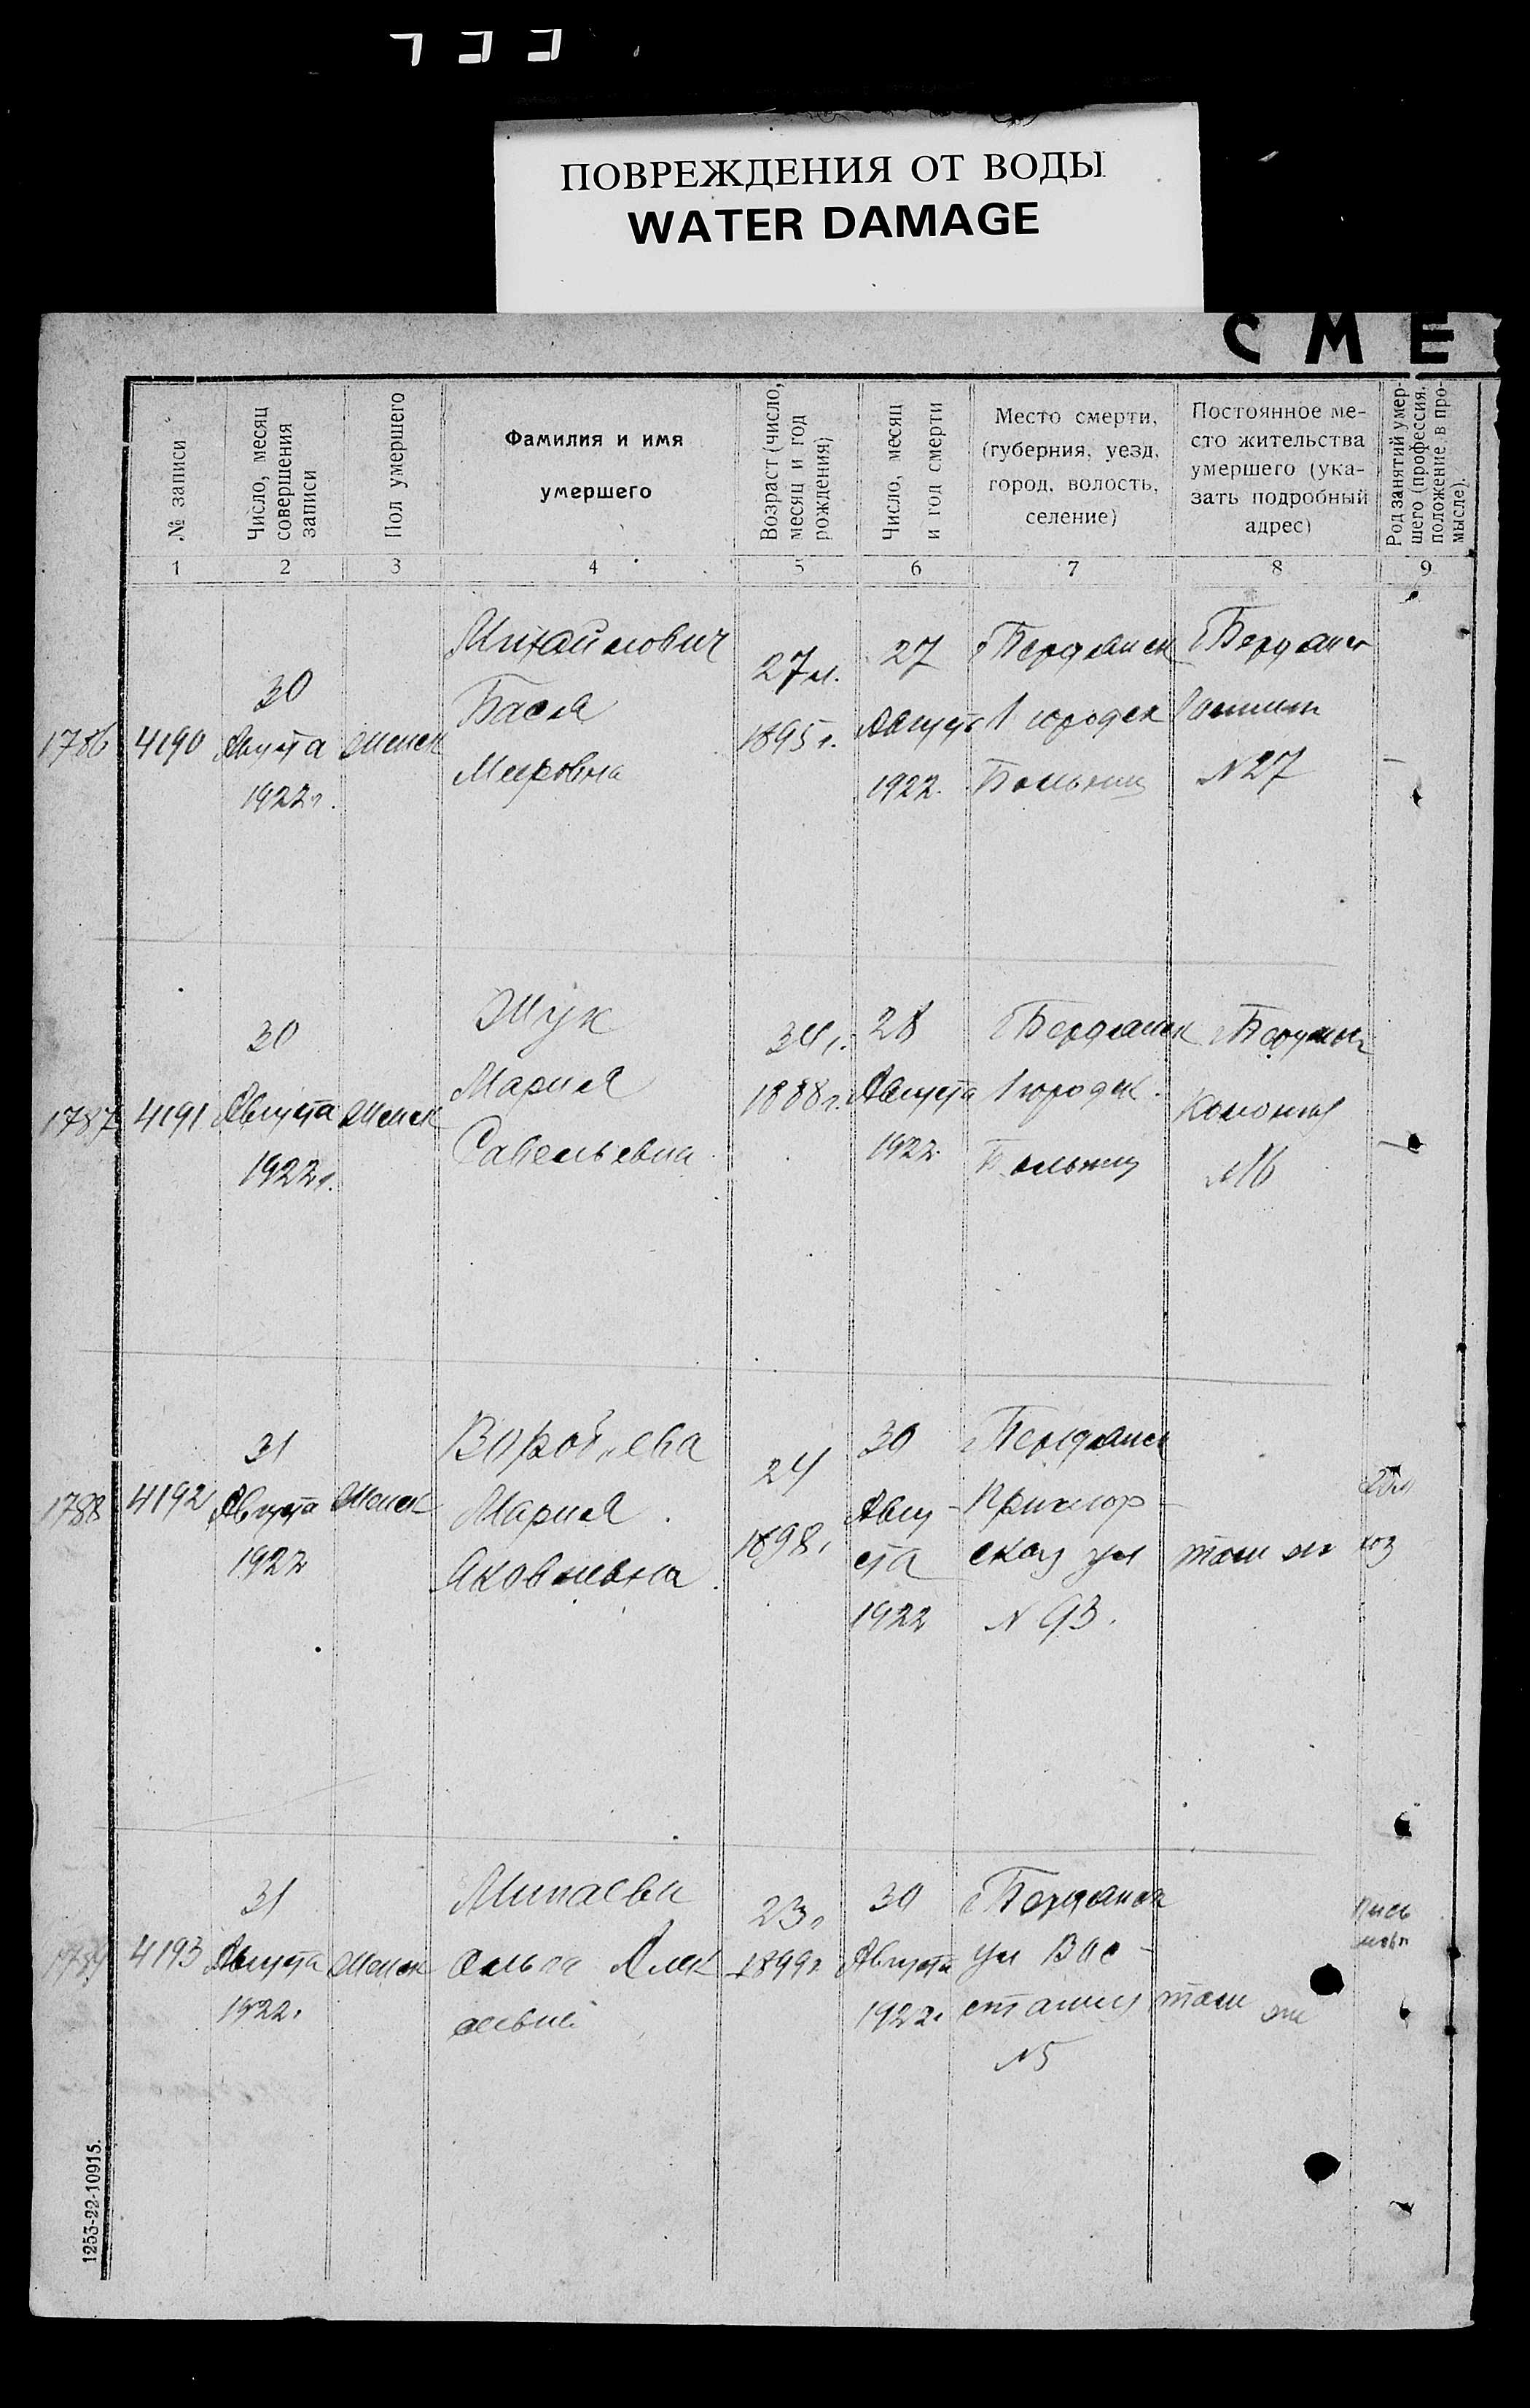 ПОВРЕЖДЕНИЯ ОТ ВОДЫ
WATER DAMAGE
СМЕ
№ записи
Число, месяц
совершения
записи
Пол умершего
Фамилия и имя
умершего
Возраст (число,
месяц и год
рождения)
Число, месяц
и год смерти
Место смерти,
(губерния, уезд,
город, волость,
селение)
Постоянное ме-
сто жительства
умершего (ука-
зать подробный
адрес)
Род занятий умер-
шего (профессия,
положение в про-
мысле).
1 2 3 4 5 6 7 8 9
1786
4190
30
Августа
1922 г.
Женск
Михайлович
Бася
Мировна
27 л.
1895 г.
27
Августа
1922.
г Бердянск
1 городск
Больниц
г Бердянск
N 27
1787
4191
30
Августа
1922 г.
Женск
Жук
Мария
Савельевна
34 г.
1888 г.
28
Августа
1922
г Бердянск
1 городск.
Больниц
г Бердянск
N 16
1788
4192
31
Августа
1922
Женск
Воробьева
Мария
Яковлевна
24
1898
30
Авгу-
ста
1922
г Бердянск
Примор-
ская ул
N 93.
там же
дом
хоз
1789
4193
31
Августа
1922 г.
Женск
Минаева
Ольга Алек
23 г
1899 г
30
Августа
1922 г
г Бердянск
ул Вос-
стания
N 5
там же
1253-22-10915.